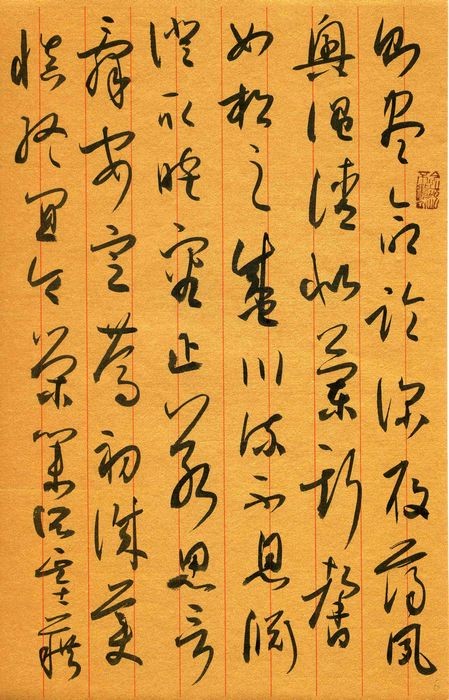 則盡命臨深履薄夙
興溫清似蘭斯馨
如松之盛川流不息淵
澄取暎容止若思言
辭安定篤初誠美
慎終宜令榮業所基藉